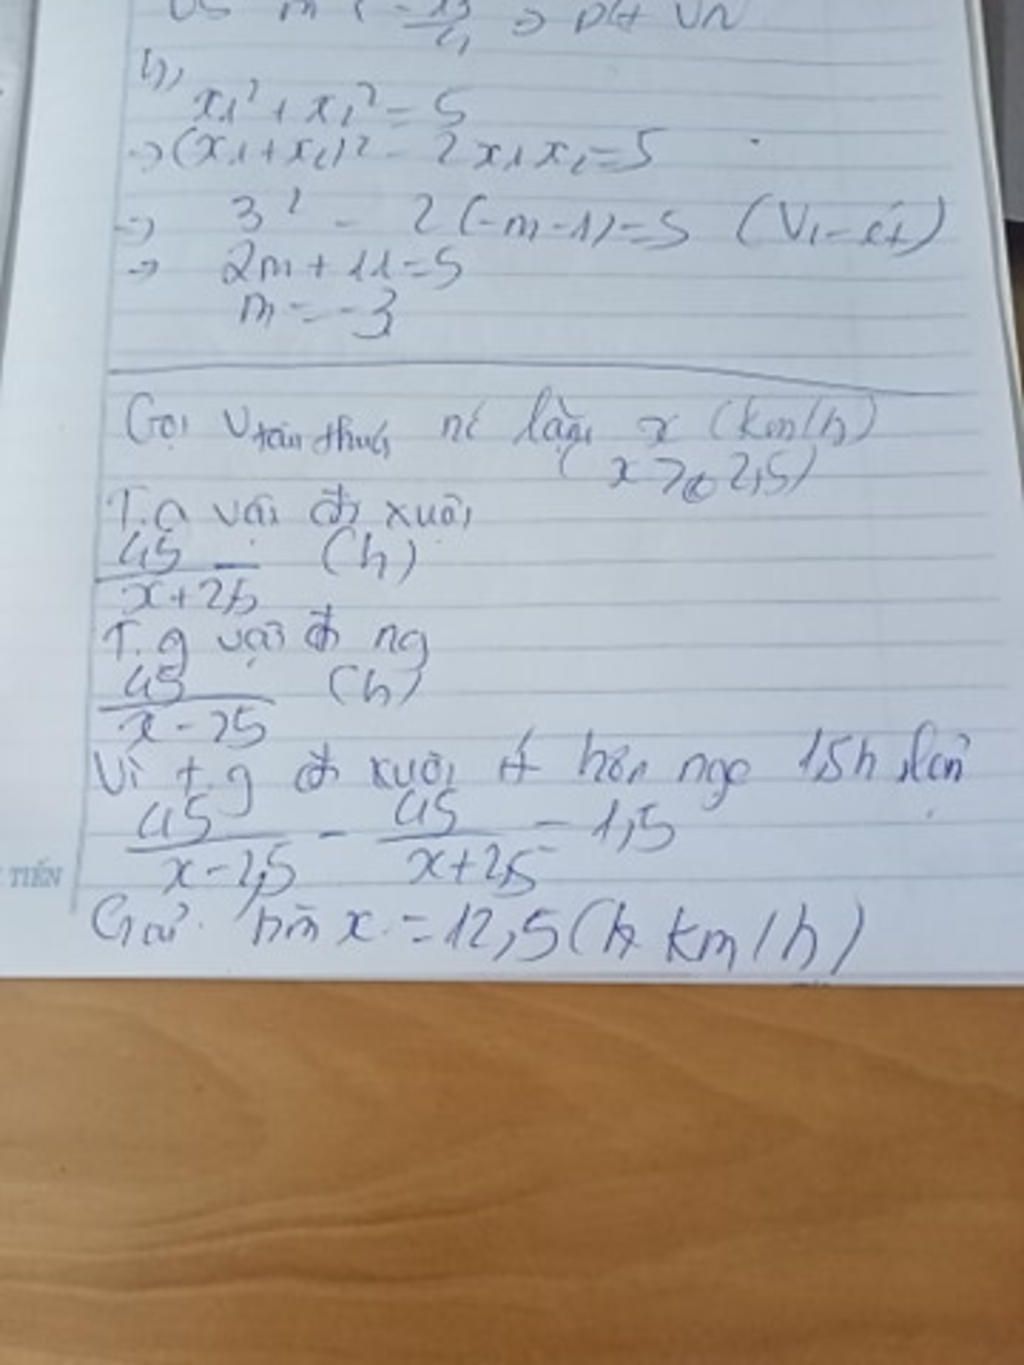 m < -13/4 => pt VN
b,
x₁² + x₂² = 5
-> (x₁+x₂)² - 2x₁x₂ = 5
-> 3² - 2(-m-1) = 5 (Vi-ét)
-> 2m + 11 = 5
m = -3
Gọi v tàu thuỷ là x (km/h)
(x > 2,5)
T.g vại đi xuôi
45/(x+2,5) (h)
T.g vại đi ng
45/(x-25) (h)
Vì t.g đi xuôi ít hơn ngc 1,5h
45/(x-2,5) - 45/(x+2,5) = 1,5
x = 12,5 (km/h)
TIẾN